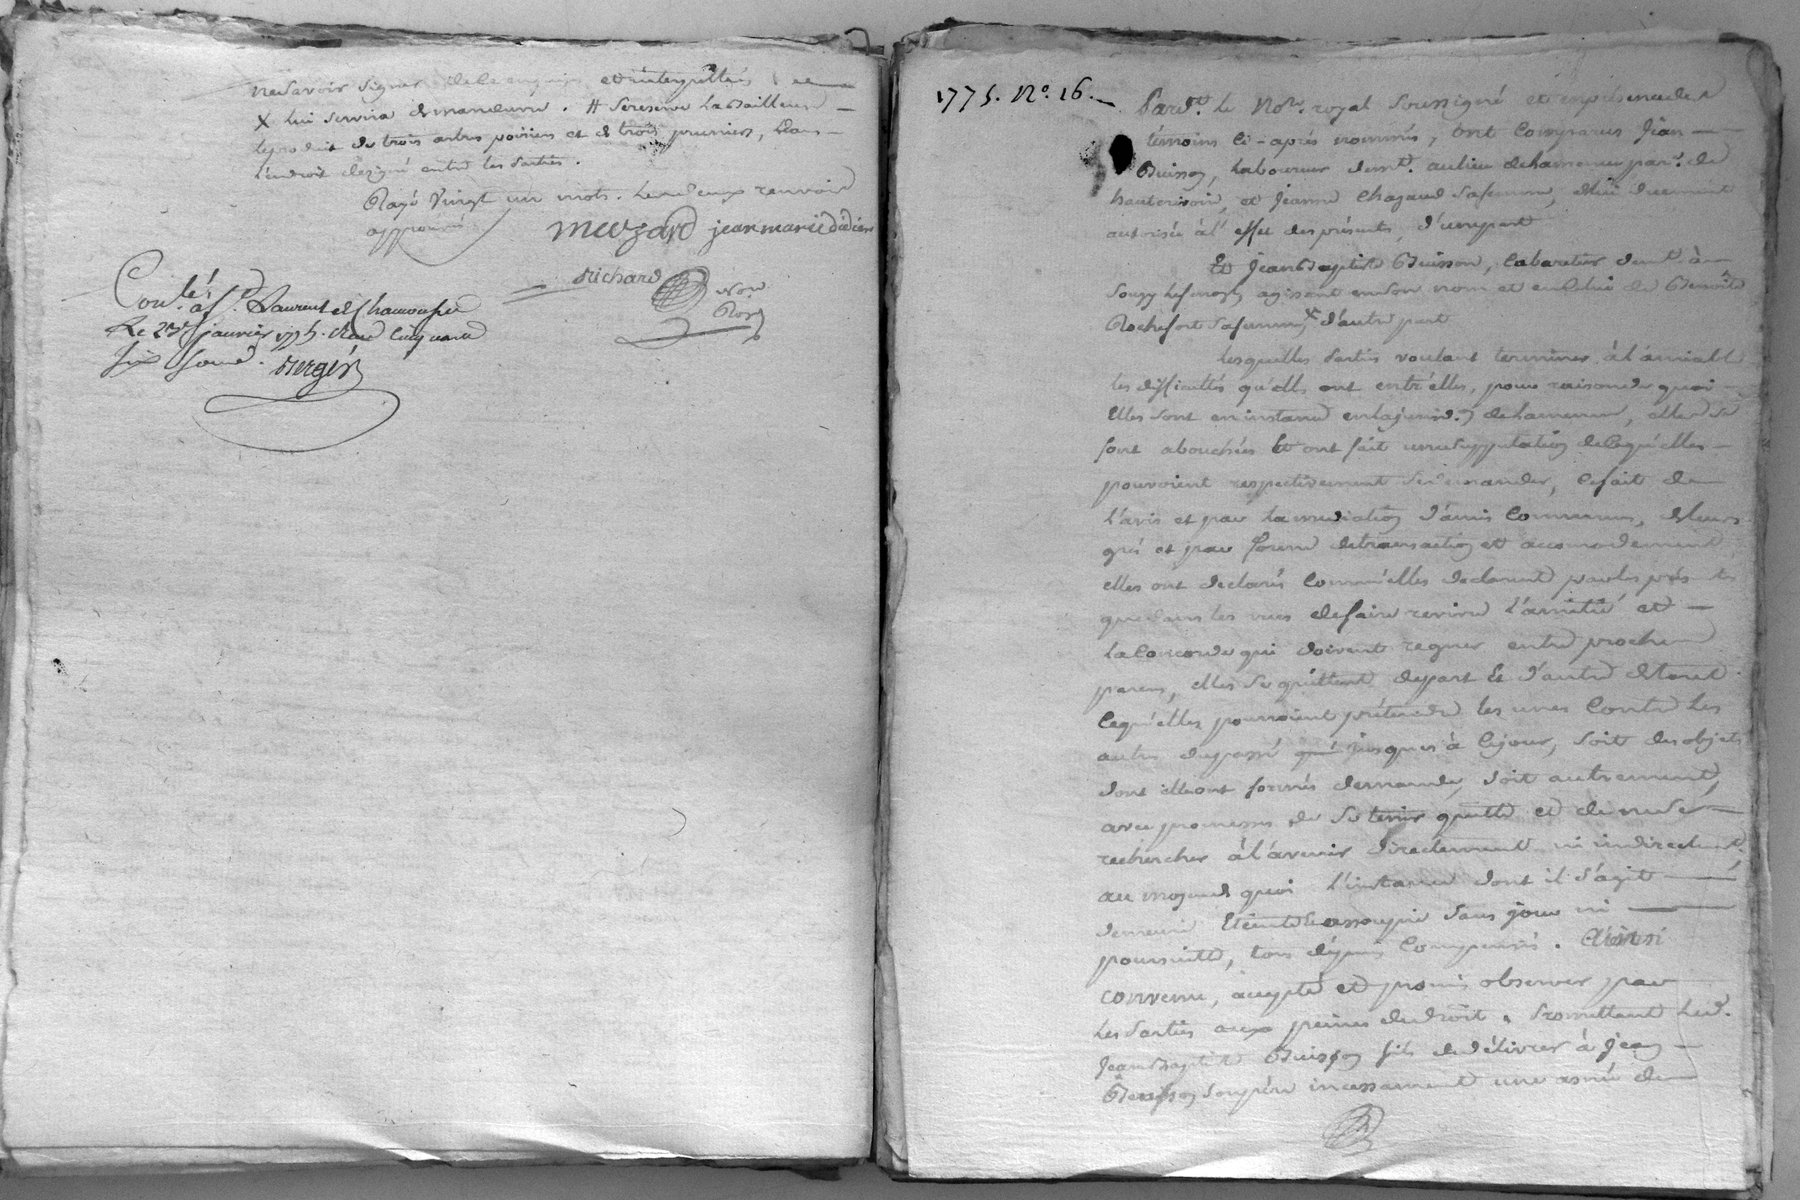 ne savoir signer de ce enquis et interpellés
X lui servira de manœuvre. # se reserve la Bailleuse
le produit de trois arbres poiriers et de trois pruniers, dans
l'endroit designé entre les parties.
Rayé vingt un mots. les deux renvois
approuvés
Meuzard jean marie didier
Richard
Nore
Roy
Con.lé à S.t Laurent de Chamousset
Le 27 janvier 1775. Reçu cinquante
six sous. Bergér
1775. N.o 16.
Pard.t le No.re royal soussigné et en présence des
témoins ci-après nommés, ont comparus jean
Buisson, laboureur dem.t au lieu de hameau par.e de
hauterivoire, et jeanne Chazaud sa femme, de lui duement
autorisée à l'effet des présentes, d'une part
Et jean Baptiste Buisson, cabaretier dem.t à
Souzy agissant en son nom et en celui de Benoîte
Rochefort sa femme, X d'autre part
lesquelles parties voulant terminer à l'amiable
les difficultés qu'elles ont entr'elles, pour raison de quoi
Elles sont en instance en la jurid.on de hamenue, elles se
sont abouchées Et ont fait une supputation de ce qu'elles
pouvoient respectivement se demander, ce fait de
l'avis et par la mediation d'amis communs, de leurs
grés et par forme de transaction et accomodement
elles ont declarés comm'elles declarent par les présentes
que dans les vues de faire revivre l'amitié et
la concorde qui doivent regner entre proches
parens, elles se quittent de part Et d'autre de tout
ce qu'elles pourroient prétendre les unes contre les
autres du passé qui jusques à ce jour, soit des objets
dont elles ont formés demande, soit autrement,
avec promesses de se tenir quitte et de ne se
rechercher à l'avenir directement ni indirectem.t
au moyen de quoi l'instance dont il s'agit
demeure Eteinte et assoupie sans jour ni
poursuitte, tous dépens compensés. Ainsi
convenu, accepté et promis observer par
les parties aux peines de droit. Promettant led.
jean Baptiste Buisson fils de délivrer à jean
Buisson son père incessament une asnée de